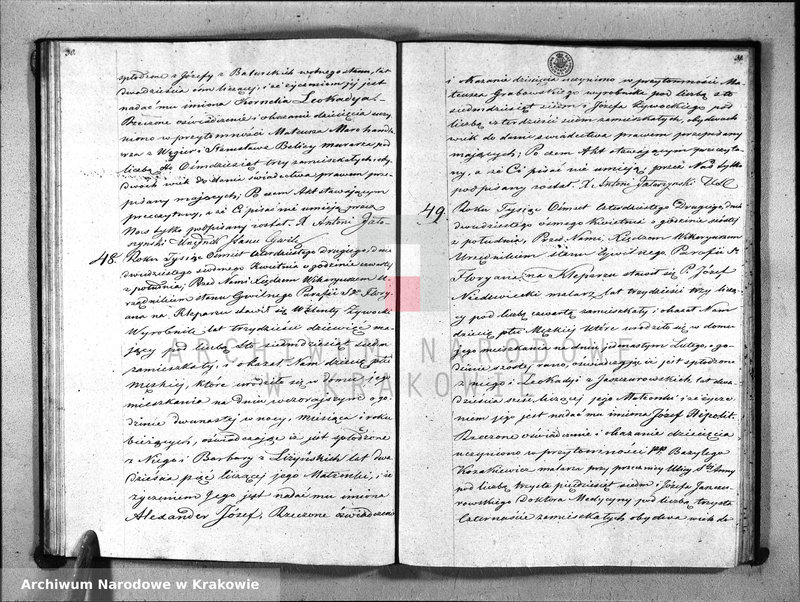 30.
spłodzone z Józefy z Balurskich wolnego stanu, lat
dwadzieścia ośm liczącej, i że życzeniem jej jest
nadać mu imiona Kornelia Leokadya.
Rzeczone oświadczenie i okazanie dziecięcia uczy
niono w przytomności Mateusza handla
rza z Węgier, i Stanisława murarza pod
liczbą Ośmdziesiąt trzy zamieszkałych, oby
dwóch wiek do dania świadectwa prawem prze
pisany mających; Po czem Akt stawającym
przeczytany, a że Ci pisać nie umieją przez
Nas tylko podpisany został. X Antoni Jata
rzyński Urzędnik Stanu Cywil
48. Roku Tysiąc Ośmset Czterdziestego drugiego, dnia
dwudziestego siódmego Kwietnia o godzinie czwartej
z południa, Przed Nami Xiędzem Wikaryuszem U
rzędnikiem stanu Cywilnego Parafii Sgo Flory
ana na Kleparzu stawił się Walenty Żywocki
Wyrobnik lat trzydzieści dziewięć ma
jący pod liczbą Sto siedmdziesiąt siedm
zamieszkały, i okazał Nam dziecię płci
męzkiej, które urodziło się w domu jego
mieszkania na dniu wczorajszym o go
dzinie dwunastej w nocy, miesiąca i roku
bieżących, oświadczając iż jest spłodzone
z Niego i Barbary z Liżyńskich lat dwa
dzieścia pięć liczącej jego Małżonki, i że
życzeniem Jego jest nadać mu imiona
Alexander Józef, Rzeczone oświadczenie
i okazanie dziecięcia uczyniono w przytomności Ma
teusza Grabowskiego wyrobnika pod liczbą sto
siedmdziesiąt siedm i Józefa Żywockiego pod
liczbą czterdzieści siedm zamieszkałych, obydwóch
wiek do dania świadectwa prawem przepisany
mających; Po czem Akt stawającym przeczyta
ny, a że Ci pisać nie umieją przez Nas tylko
podpisany został. X. Antoni Jatarzynski USC
49. Roku Tysiąc Ośmset Czterdziestego Drugiego, dnia
dwudziestego ósmego Kwietnia o godzinie szóstej
z południa, Przed Nami Xiędzem Wikaryuszem
Urzędnikiem stanu Cywilnego Parafii Sgo
Floryana na Kleparzu stawił się P. Józef
Niedzwiecki malarz, lat trzydzieści trzy liczą
cy pod liczbą czwartą zamieszkały i okazał Nam
dziecię płci Męzkiej które urodziło się w domu
jego mieszkania na dniu jedenastym Lutego, o go
dzinie szóstej rano, oświadczając iż jest spłodzone
z niego i Leokadyi z Janczurowskich, lat dwa
dzieścia sześć liczącej jego Małżonki i że życze
niem jego jest nadać mu imiona Józef Hipolit.
Rzeczone oświadczenie i okazanie dziecięcia
uczyniono w przytomności PP Bazylego
Kozakiewicz malarza przy przecznicy Ulicy Sej Anny
pod liczbą trzysta piędziesiąt siedm i Józefa Janczu
rowskiego Doktora Medycyny pod liczbą trzysta
czternaście zamieszkałych obydwa wiek do
ARCHIWUM NARODOWE
W KRAKOWIE
Archiwum Narodowe w Krakowie